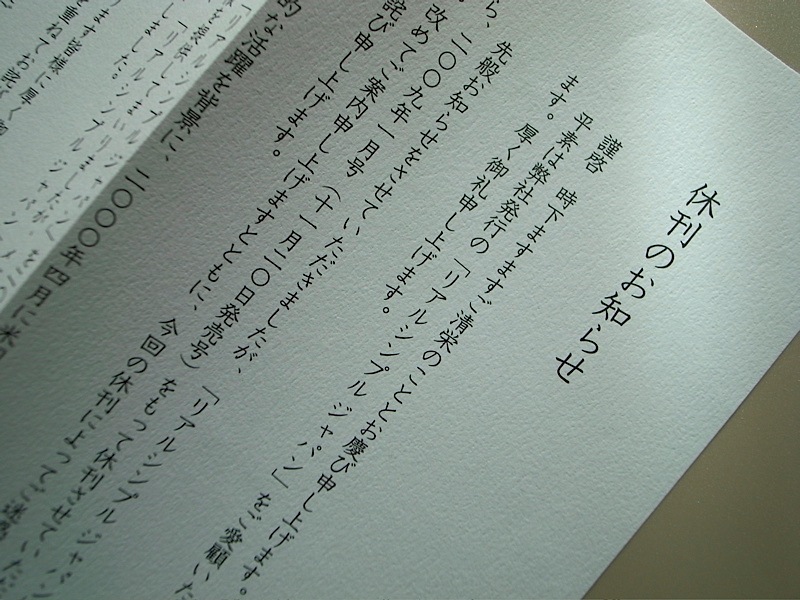 休刊のお知らせ
謹啓　時下ますますご清栄のこととお慶び申し上げます。
平素は弊社発行の「リアルシンプル ジャパン」をご愛顧いた
ます。厚く御礼申し上げます。
ら、先般お知らせをさせていただきましたが、「リアルシンプル ジャパン
二〇〇九年一月号（十一月二〇日発売号）をもって休刊させていただ
改めてご案内申し上げますとともに、今回の休刊によってご迷
詫び申し上げます。
的な活躍を背景に、二〇〇〇年四月に米
「リアルシンプル ジャパン
してまいりましたが、
ります皆様に厚く御
重ねてお詫び